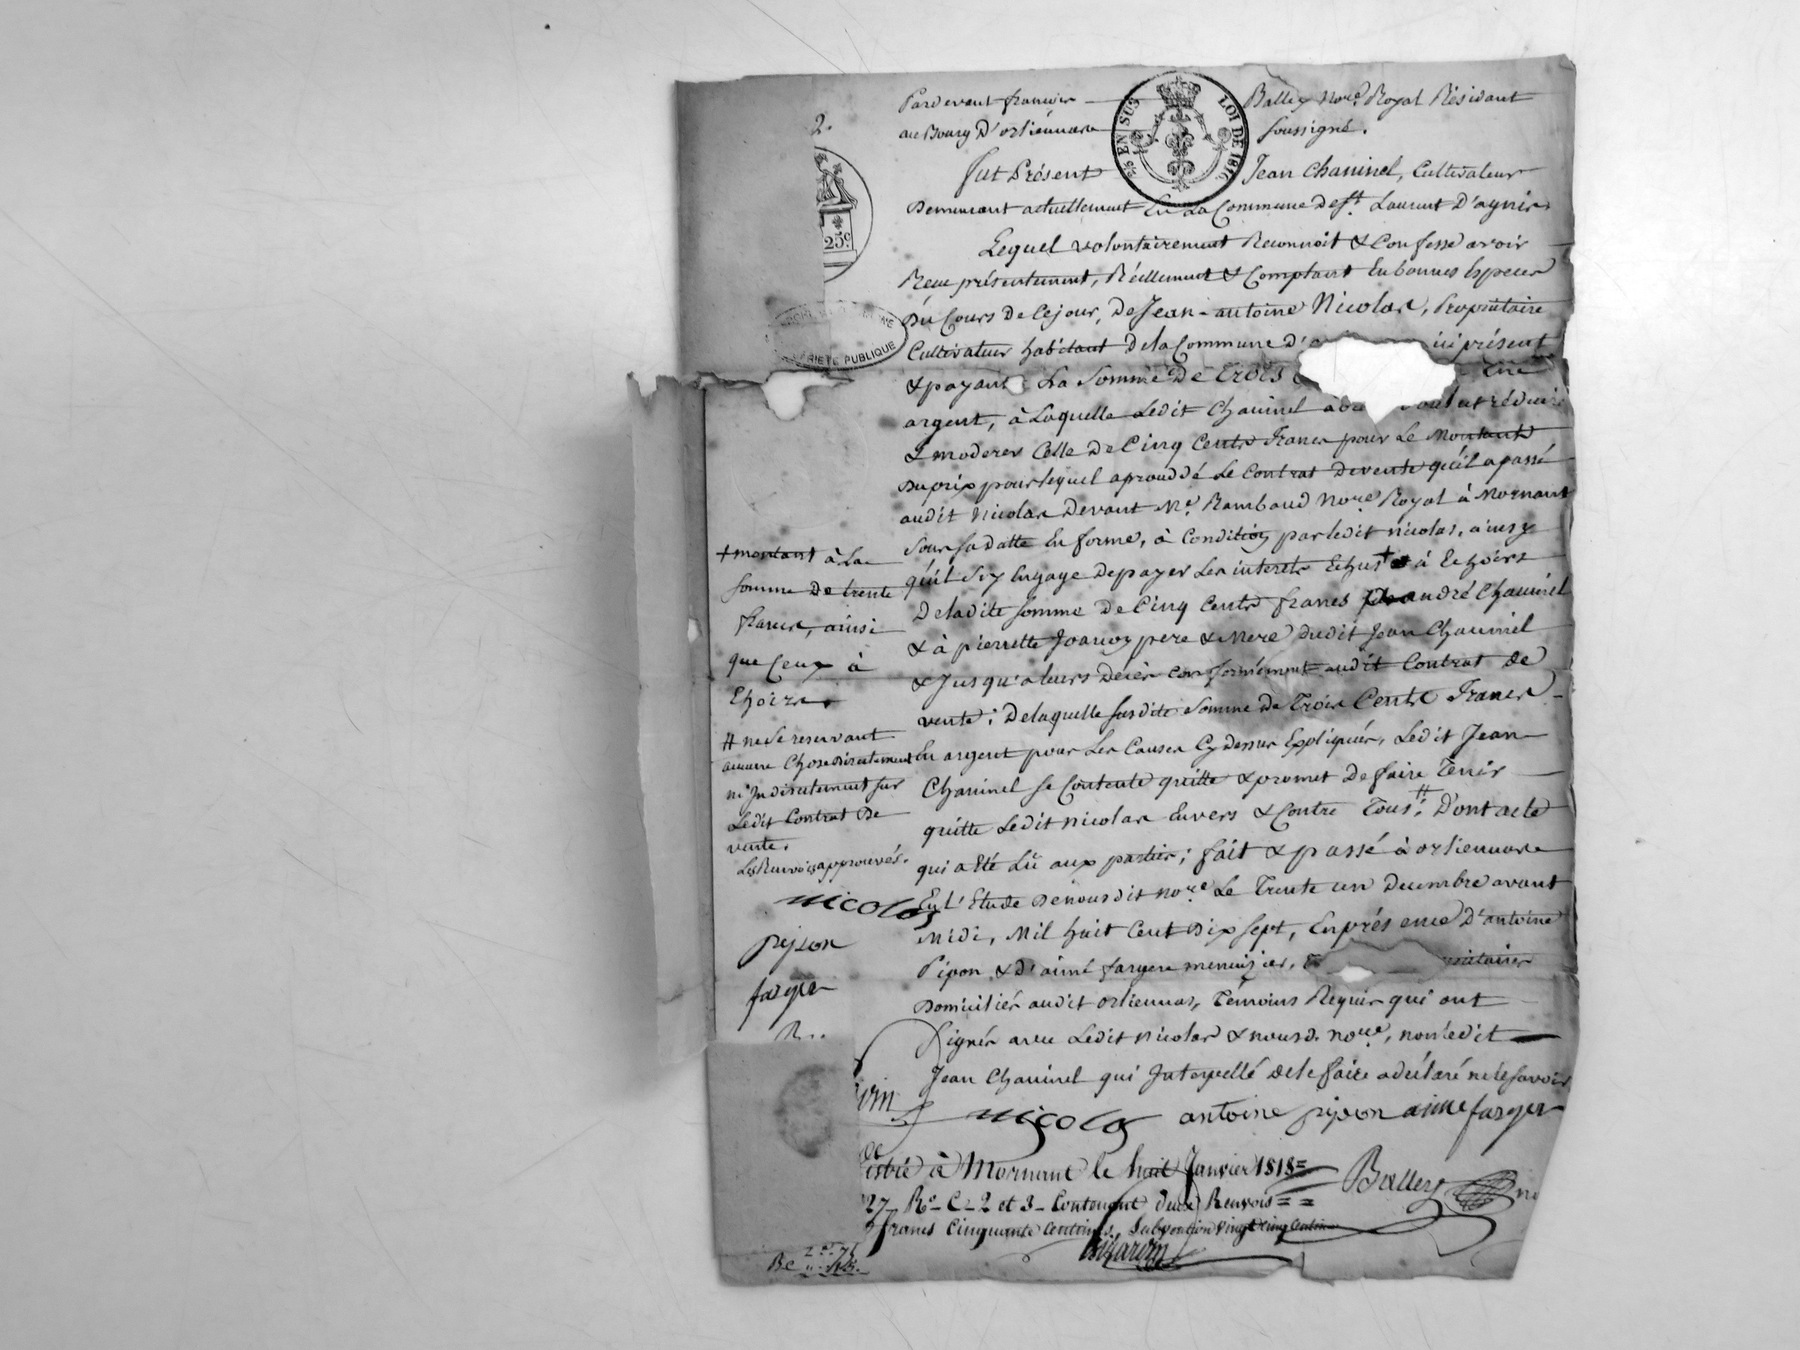 2.
Pardevant françois Balley No.re Royal Résidant
au Bourg D'orliennare soussigné.
25 EN SUS LOI DE 1816
fut Présent Jean Chaninel, Cultivateur
Demeurant actuellement En La Commune de S.t Laurent D'agnis
25c
Lequel volontairement Reconnoit & Confesse avoir
Reçu présentement, Réellement & Comptant En bonnes Especes
Du Cours De Cejour, De Jean-antoine Nicolas, Propriétaire
PUBLIQUE
Cultivateur habitant De la Commune D' ici présent
& payant La Somme De Trois
argent, à Laquelle Ledit Chaninel a réduire
& moderer Celle De Cinq Cents Francs pour Le Montant
Du prix pour lequel a procédé Le Contrat De vente qu'il a passé
audit Nicolas Devant M.e Rambaud No.re Royal à Mornant
Sous Sa Datte En forme, à Condition par ledit Nicolas, ainsy
qu'il S'y Engage De payer Les interets Echus + à Echoirs
De ladite somme De Cinq Cents francs andré Chaninel
& à pierrette Joannon pere & Mere Dudit Jean Chaninel
& Jusqu'a leurs Décès Conformément audit Contrat De
vente; De laquelle susdite Somme De Trois Cents Francs
En argent pour Les Causes Cy Dessus Expliquées, Ledit Jean
Chaninel se Contente quitte & promet De faire Tenir
quitte Ledit Nicolas Envers & Contre Tous #. D'ont acte
qui a Eté Lû aux parties; fait & passé à orliennare
En L'Etude De nous dit No.re Le Trente un Decembre avant
Midi, Mil huit Cent Dix sept, En présence D'antoine
Pipon & D'aimé fargere menuizier,
Domiciliés audit orliennas, Témoins Requis qui ont
Signés avec Ledit Nicolas & nous d. No.re, non Ledit
Jean Chaninel qui Interpellé De le faire a déclaré ne le savoir
+ montant à La
somme De trente
francs, ainsi
que Ceux à
Ehoirs
# ne Se reservant
aucune Chose Directement
ni Indirectement sur
Ledit Contrat De
vente.
Les Renvois approuvés.
nicolas
pipon
farger
nicolas antoine pipon aime farger
Balley
à Mornant le huit Janvier 1818
27 R.o C. 2 et 3 Contenant deux Renvois
francs Cinquante Centimes. Subvention Vingt Cinq Centimes